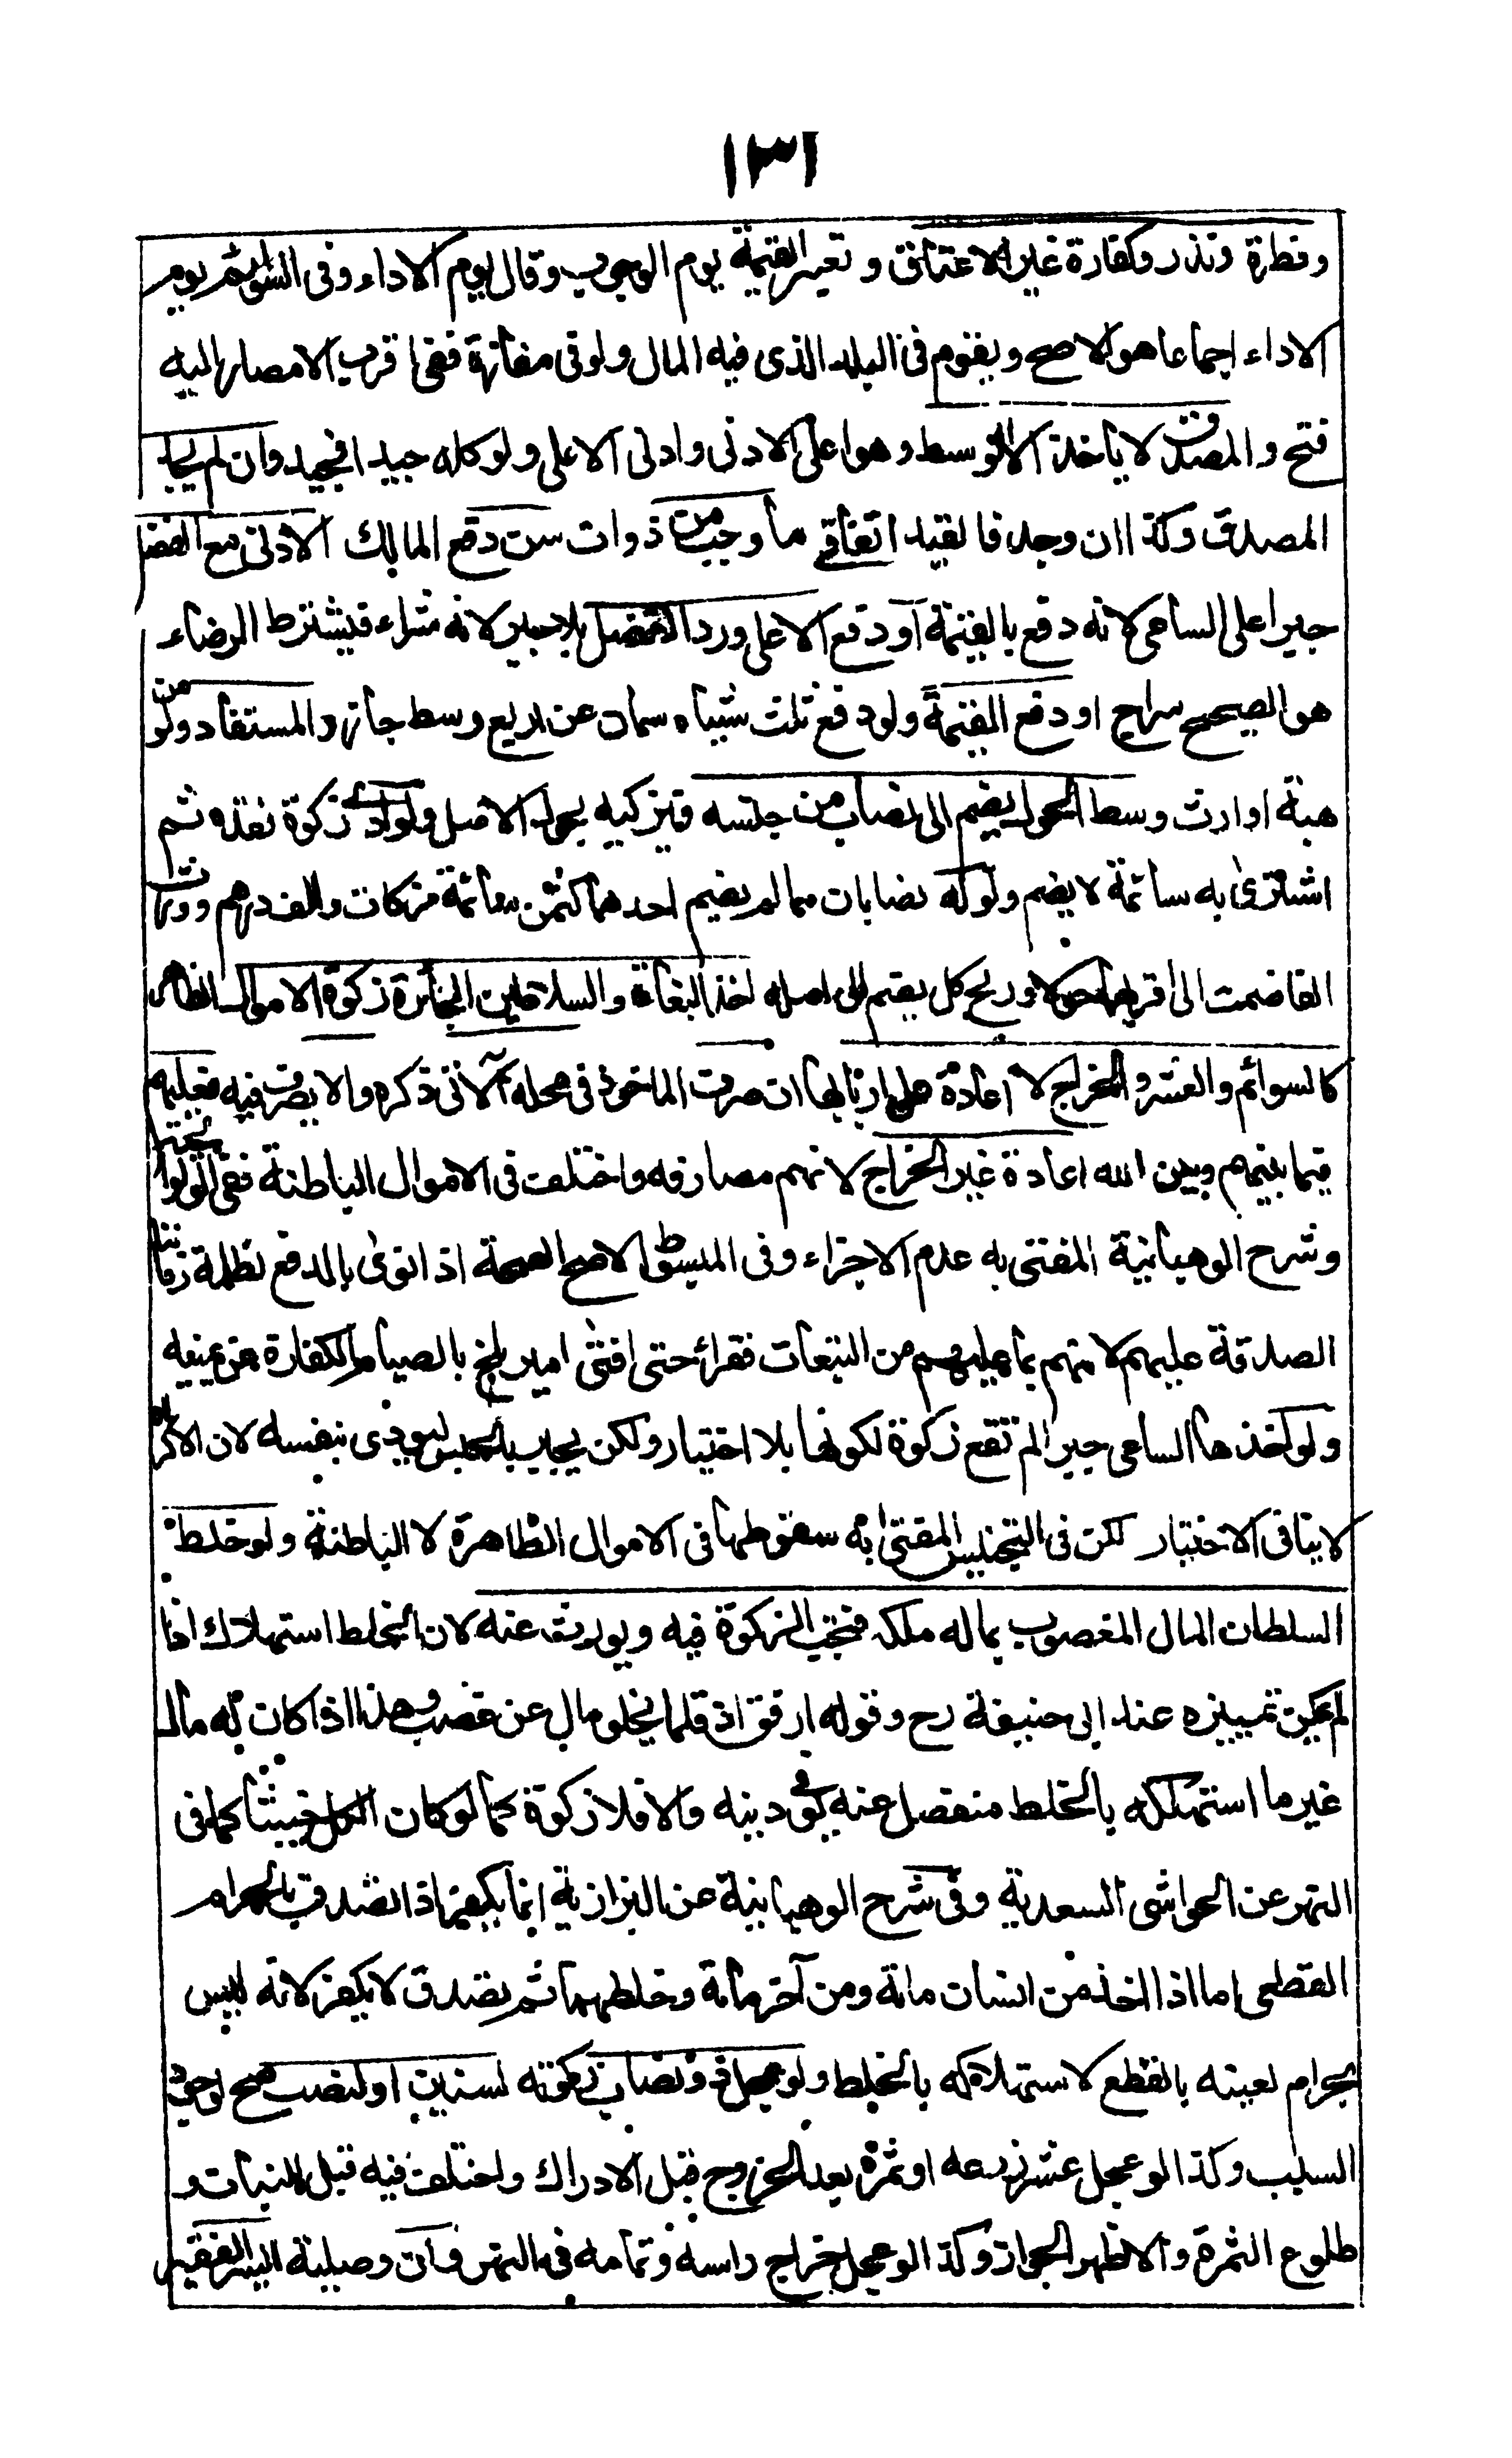 ١٣١
وفطرة ونذر وكفارة غير الاعتاق وتعتبر القيمة يوم الوجوب وقالا يوم الاداء وفى السوائم يوم
الاداء اجماعا هو الاصح ويقوم فى البلد الذى فيه المال ولو فى مفازة ففى اقرب الامصار اليه
فتح والمصدق لا يأخذ الا الوسط وهو اعلى الادنى وادنى الاعلى ولو كله جيد افجيد وان لم يجد
المصدق وكذا ان وجد فالقيد اتفاقى ما وجب من ذوات سن دفع المالك الادنى مع الفضل
جبرا على الساعى لانه دفع بالقيمة او دفع الاعلى ورد الفضل بلا جبر لانه شراء فيشترط الرضاء
هو الصحيح سراج او دفع القيمة ولو دفع ثلث شياه سمان عن اربع وسط جاز والمستفاد ولو من
هبة او ارث وسط الحول يضم الى نصاب من جنسه فيزكيه بحول الاصل ولو ادى زكوة نقده ثم
اشترى به سائمة لا يضم ولو له نصابان مما لم يضم احدهما كثمن سائمة مزكاة والف درهم وورث
الفا ضمت الى اقربهما حولا وربح كل يضم الى اصله اخذ البغاة والسلاطين الجائرة زكوة الاموال الظاهرة
كالسوائم والعشر والخراج لا اعادة على اربابها ان صرف الماخوذ فى محله الآتى ذكره والا يصرف فيه فعليهم
فيما بينهم وبين الله اعادة غير الخراج لانهم مصارفه واختلف فى الاموال الباطنة ففى الولوالجية
وشرح الوهبانية المفتى به عدم الاجزاء وفى المبسوط الاصح الصحة اذا نوى بالدفع لظلمة زماننا
الصدقة عليهم لانهم بما عليهم من التبعات فقراء حتى افتى امير بلخ بالصيام لكفارة عن يمينه
ولو اخذها الساعى جبرا لم تقع زكوة لكونها بلا اختيار ولكن يجبر بالحبس ليودى بنفسه لان الاكراه
لا ينافى الاختيار لكن فى التجنيس المفتى به سقوطها فى الاموال الظاهرة لا الباطنة ولو خلط
السلطان المال المغصوب بماله ملكه فتجب الزكوة فيه ويورث عنه لان الخلط استهلاك اذا
لم يمكن تمييزه عند ابى حنيفة رح وقوله ارفق اذ قلما يخلو مال عن غصب وهذا اذا كان له مال
غير ما استهلكه بالخلط منفصل عنه يوفى دينه والا فلا زكوة كما لو كان الكل خبيثا كما فى
النهر عن الحواشى السعدية وفى شرح الوهبانية عن البزازية انما يكفر اذا تصدق بالحرام
القطعى اما اذا اخذ من انسان مائة ومن آخر مائة وخلطهما ثم تصدق لا يكفر لانه ليس
بحرام لعينه بالقطع لاستهلاكه بالخلط ولو عجل ذو نصاب زكوته لسنين او لنصب صح لوجود
السبب وكذا لو عجل عشر زرعه او ثمره بعد الخروج قبل الادراك واختلف فيه قبل النبات و
طلوع الثمرة والاظهر الجواز وكذا لو عجل خراج راسه وتمامه فى النهر وان وصلية ايسر الفقير